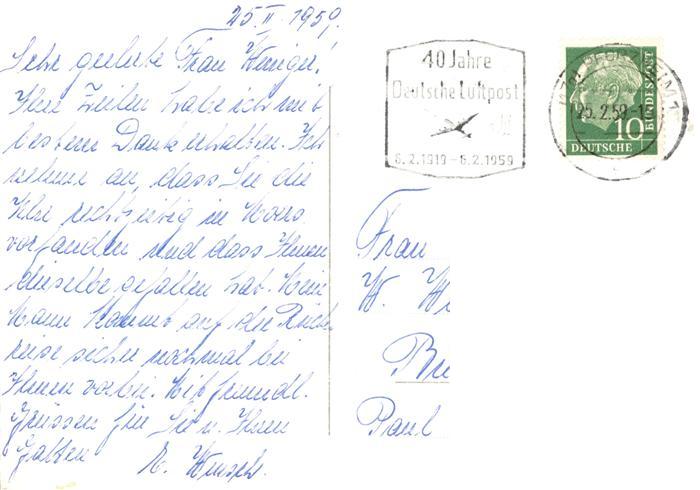 25. II. 1959.
Sehr geehrte Frau Weniger!
Ihre Zeilen habe ich mit
bestem Dank erhalten. Ich
nehme an, dass Sie die
Uhr rechtzeitig in Moers
vorfanden und dass Ihnen
dieselbe gefallen hat. Mein
Mann kommt auf der Rück-
reise sicher nochmal bei
Ihnen vorbei. Mit freundl.
Grüssen für Sie u. Ihren
Gatten
40 Jahre
Deutsche Luftpost
6.2.1919 - 6.2.1959
PFORZHEIM 1
25.2.59-1
10
DEUTSCHE
BUNDESPOST
Frau
W. W
B
Paul